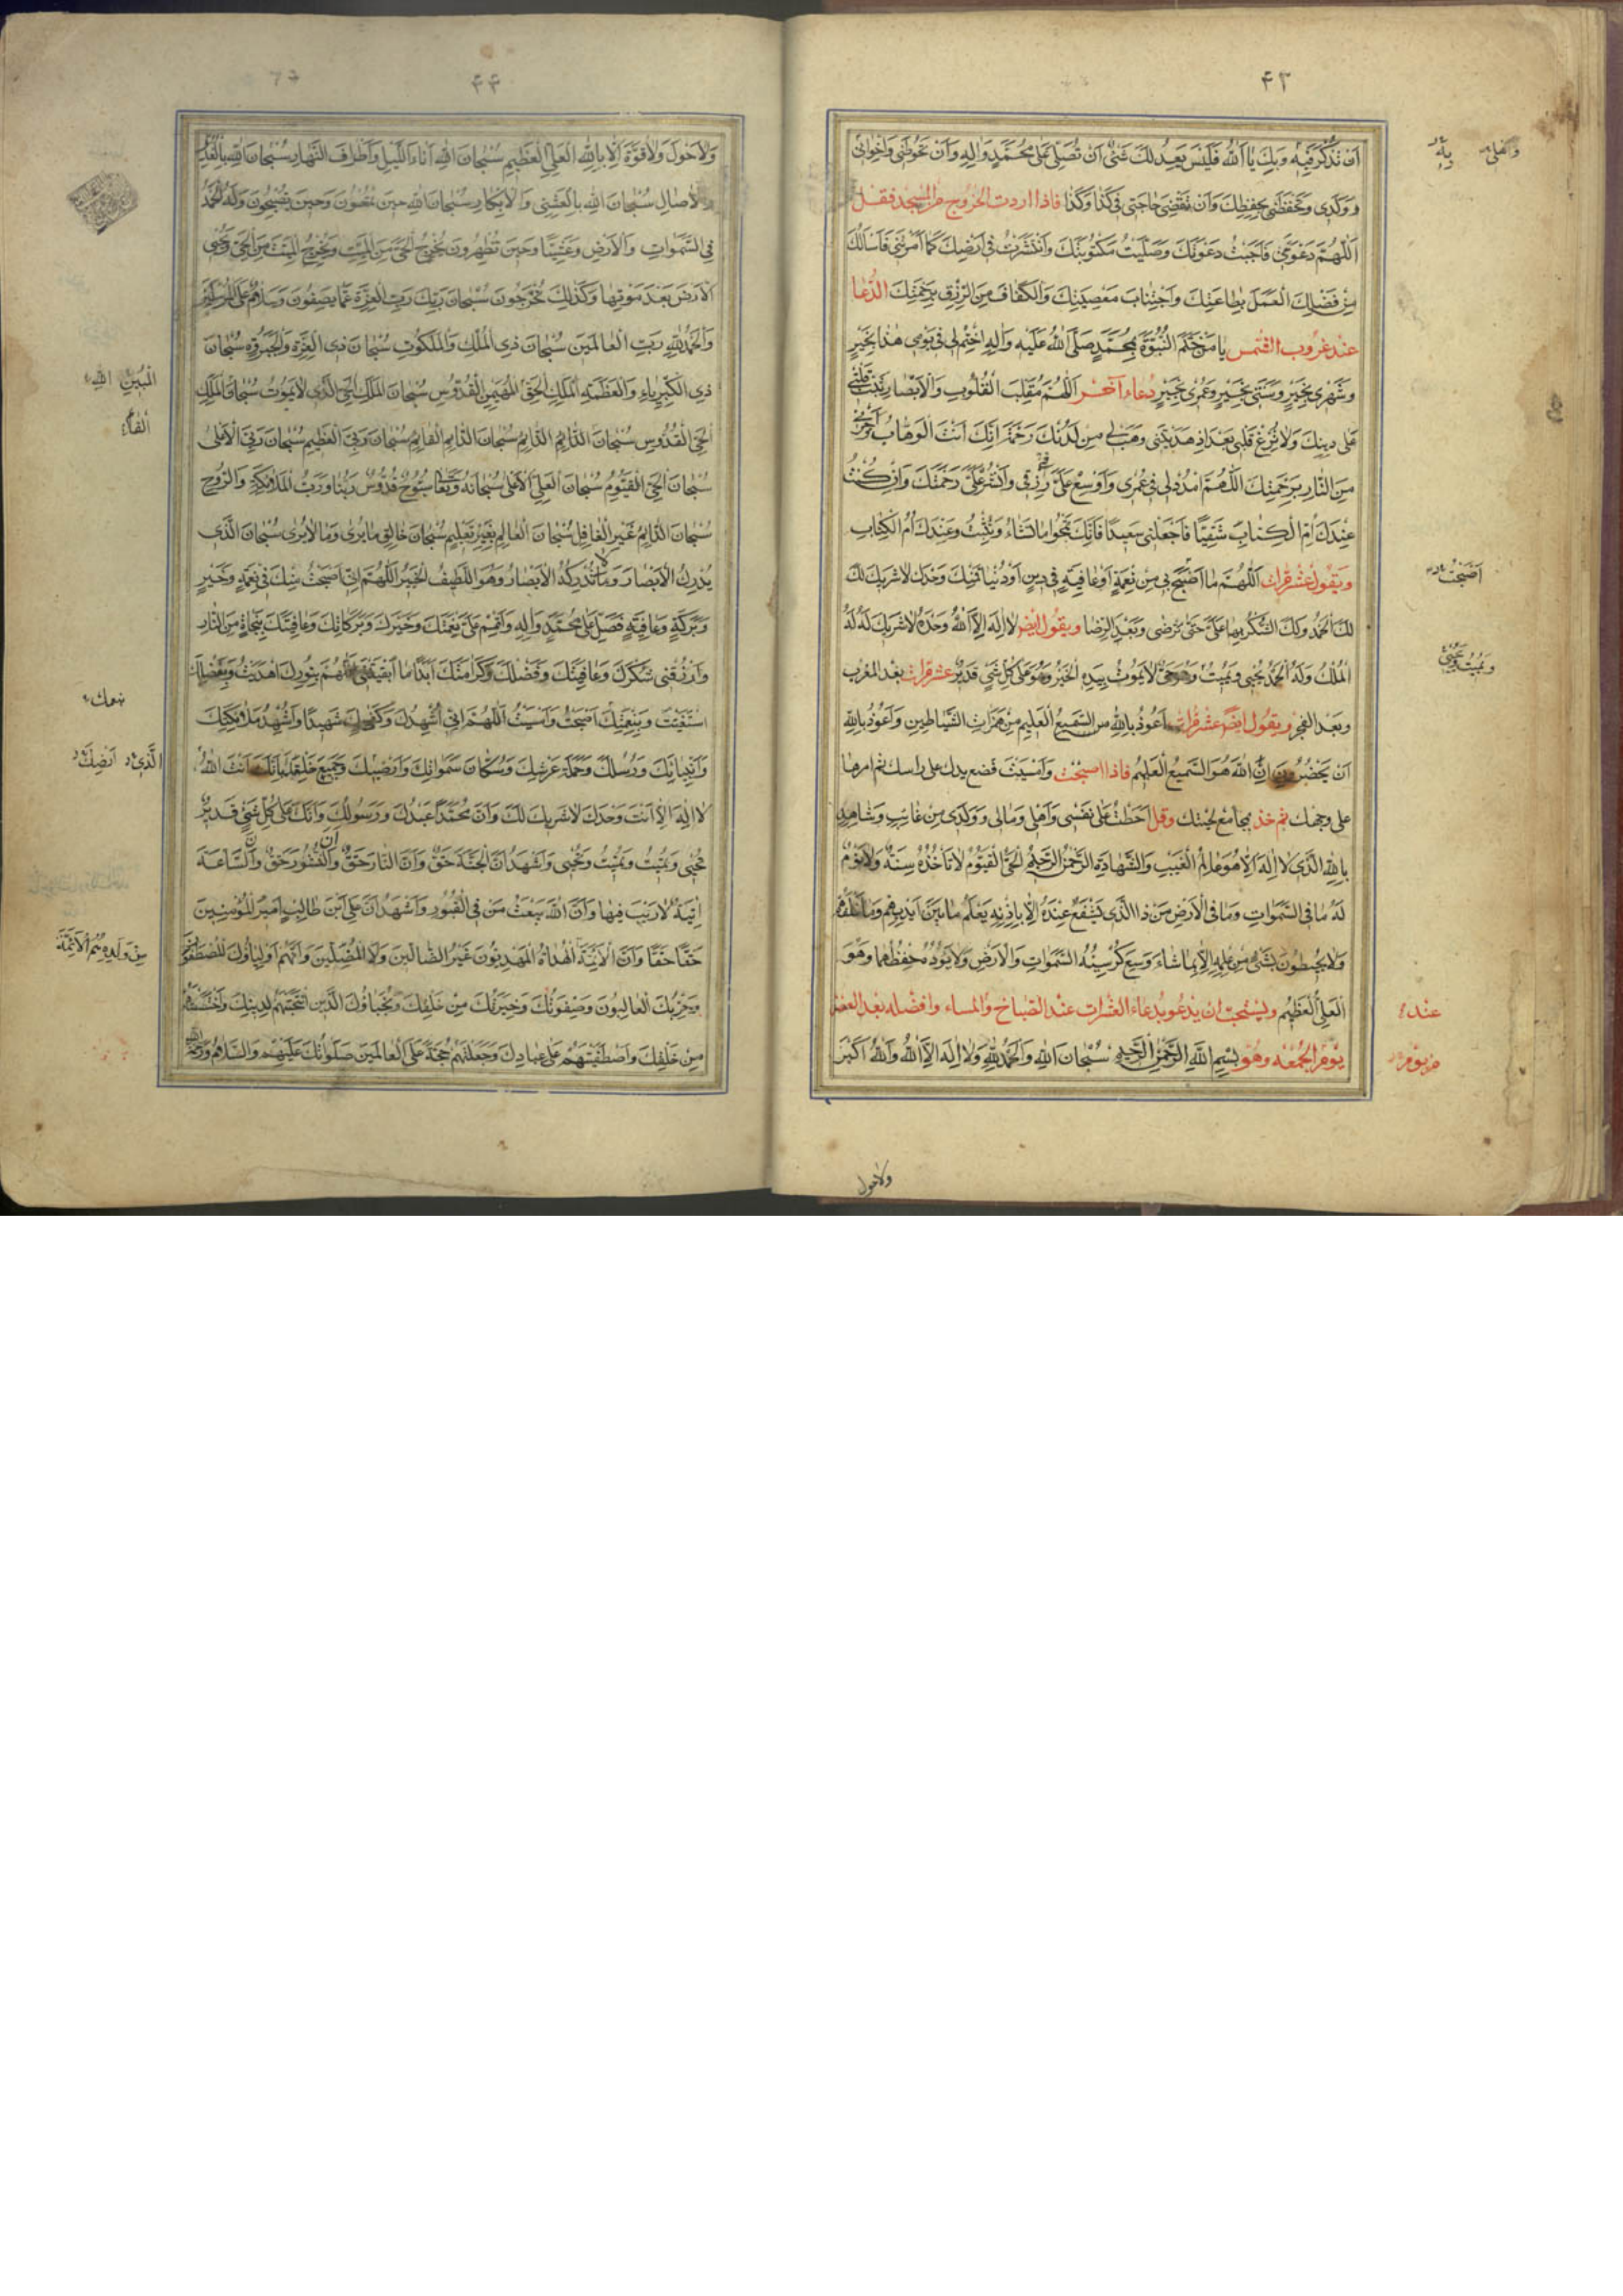 ۴۳
اَنْ تَذْكُرَ فيهِ وَبِكَ يا اَللهُ فَلَيْسَ يَعْدِلُكَ شَيْءٌ اَنْ تُصَلِّيَ عَلى مُحَمَّدٍ وَالِهِ وَاَنْ تَحُوطَني وَاِخْواني
وَوَلَدي وَتَحْفَظَني بِحِفْظِكَ وَاَنْ تَقْضِيَ حاجَتي في كَذا وَكَذا فاذا اردت الخروج من المسجد فقل
اَللّهُمَّ دَعَوْتَني فَاَجَبْتُ دَعْوَتَكَ وَصَلَّيْتُ مَكْتُوبَتَكَ وَانْتَشَرْتُ في اَرْضِكَ كَما اَمَرْتَني فَاَسْأَلُكَ
مِنْ فَضْلِكَ الْعَمَلَ بِطاعَتِكَ وَاجْتِنابَ مَعْصِيَتِكَ وَالْكَفافَ مِنَ الرِّزْقِ بِرَحْمَتِكَ الدعا
عند غروب الشمس يا مَنْ خَتَمَ النُّبُوَّةَ بِمُحَمَّدٍ صَلَّى اللهُ عَلَيْهِ وَالِهِ اخْتِمْ لي في يَوْمي هذا بِخَيْرٍ
وَشَهْري بِخَيْرٍ وَسَنَتي بِخَيْرٍ وَعُمْري بِخَيْرٍ دعاء آخر اَللّهُمَّ مُقَلِّبَ الْقُلُوبِ وَالْاَبْصارِ ثَبِّتْ قَلْبي
عَلى دينِكَ وَلا تُزِغْ قَلْبي بَعْدَ اِذْ هَدَيْتَني وَهَبْ لي مِنْ لَدُنْكَ رَحْمَةً اِنَّكَ اَنْتَ الْوَهّابُ وَاَجِرْني
مِنَ النّارِ بِرَحْمَتِكَ اَللّهُمَّ امْدُدْ لي في عُمْري وَاَوْسِعْ عَلَيَّ في رِزْقي وَانْشُرْ عَلَيَّ رَحْمَتَكَ وَاِنْ كُنْتُ
عِنْدَكَ في اُمِّ الْكِتابِ شَقِيًّا فَاجْعَلْني سَعيدًا فَاِنَّكَ تَمْحُوا ما تَشاءُ وَتُثْبِتُ وَعِنْدَكَ اُمُّ الْكِتابِ
ويقول عشر مرات اَللّهُمَّ ما اَصْبَحَ بي مِنْ نِعْمَةٍ اَوْ عافِيَةٍ في دينٍ اَوْ دُنْيا فَمِنْكَ وَحْدَكَ لا شَريكَ لَكَ
لَكَ الْحَمْدُ وَلَكَ الشُّكْرُ بِها عَلَيَّ حَتّى تَرْضى وَبَعْدَ الرِّضا ويقول ايضا لا اِلهَ اِلَّا اللهُ وَحْدَهُ لا شَريكَ لَهُ لَهُ
الْمُلْكُ وَلَهُ الْحَمْدُ يُحْيي وَيُميتُ وَهُوَ حَيٌّ لا يَمُوتُ بِيَدِهِ الْخَيْرُ وَهُوَ عَلى كُلِّ شَيْءٍ قَديرٌ عشر مرات بعد المغرب
وبعد الفجر ويقول ايضا عشر مرات اَعُوذُ بِاللهِ السَّميعِ الْعَليمِ مِنْ هَمَزاتِ الشَّياطينِ وَاَعُوذُ بِاللهِ
اَنْ يَحْضُرُونِ اِنَّ اللهَ هُوَ السَّميعُ الْعَليمُ فاذا اصبحت وامسيت فضع يدك على راسك ثم امرها
على وجهك ثم خذ بمجامع لحيتك وقل اَحَطْتُ عَلى نَفْسي وَاَهْلي وَمالي وَوَلَدي مِنْ غائِبٍ وَشاهِدٍ
بِاللهِ الَّذي لا اِلهَ اِلّا هُوَ عالِمُ الْغَيْبِ وَالشَّهادَةِ الرَّحْمنُ الرَّحيمُ الْحَيُّ الْقَيُّومُ لا تَأْخُذُهُ سِنَةٌ وَلا نَوْمٌ
لَهُ ما فِي السَّمواتِ وَما فِي الْاَرْضِ مَنْ ذَا الَّذي يَشْفَعُ عِنْدَهُ اِلّا بِاِذْنِهِ يَعْلَمُ ما بَيْنَ اَيْديهِمْ وَما خَلْفَهُمْ
وَلا يُحيطُونَ بِشَيْءٍ مِنْ عِلْمِهِ اِلّا بِما شاءَ وَسِعَ كُرْسِيُّهُ السَّمواتِ وَالْاَرْضَ وَلا يَؤُدُهُ حِفْظُهُما وَهُوَ
الْعَلِيُّ الْعَظيمُ ويستحب ان يدعو بدعاء العشرات عند الصباح والمساء وافضله بعد العصر
يوم الجمعة وهو بِسْمِ اللهِ الرَّحْمنِ الرَّحيمِ سُبْحانَ اللهِ وَالْحَمْدُ لِلهِ وَلا اِلهَ اِلَّا اللهُ وَاللهُ اَكْبَرُ
اَصْبَحْتُ
وَيُميتُ وَيُحْيي
عند
من يوم
ولاحول
۴۴
وَلا حَوْلَ وَلا قُوَّةَ اِلّا بِاللهِ الْعَلِيِّ الْعَظيمِ سُبْحانَ اللهِ اناءَ اللَّيْلِ وَاَطْرافَ النَّهارِ سُبْحانَ اللهِ بِالْغُدُوِّ
وَالْاصالِ سُبْحانَ اللهِ بِالْعَشِيِّ وَالْاِبْكارِ سُبْحانَ اللهِ حينَ تُمْسُونَ وَحينَ تُصْبِحُونَ وَلَهُ الْحَمْدُ
فِي السَّمواتِ وَالْاَرْضِ وَعَشِيًّا وَحينَ تُظْهِرُونَ يُخْرِجُ الْحَيَّ مِنَ الْمَيِّتِ وَيُخْرِجُ الْمَيِّتَ مِنَ الْحَيِّ وَيُحْيي
الْاَرْضَ بَعْدَ مَوْتِها وَكَذلِكَ تُخْرَجُونَ سُبْحانَ رَبِّكَ رَبِّ الْعِزَّةِ عَمّا يَصِفُونَ وَسَلامٌ عَلَى الْمُرْسَلينَ
وَالْحَمْدُ لِلهِ رَبِّ الْعالَمينَ سُبْحانَ ذِي الْمُلْكِ وَالْمَلَكُوتِ سُبْحانَ ذِي الْعِزَّةِ وَالْجَبَرُوتِ سُبْحانَ
ذِي الْكِبْرِياءِ وَالْعَظَمَةِ الْمَلِكِ الْحَقِّ الْمُهَيْمِنِ الْقُدُّوسِ سُبْحانَ الْمَلِكِ الْحَيِّ الَّذي لا يَمُوتُ سُبْحانَ الْمَلِكِ
الْحَيِّ الْقُدُّوسِ سُبْحانَ الدّائِمِ الْقائِمِ سُبْحانَ رَبِّيَ الْعَظيمِ سُبْحانَ رَبِّيَ الْاَعْلى
سُبْحانَ الْحَيِّ الْقَيُّومِ سُبْحانَ الْعَلِيِّ الْاَعْلى سُبْحانَهُ وَتَعالى سُبُّوحٌ قُدُّوسٌ رَبُّنا وَرَبُّ الْمَلائِكَةِ وَالرُّوحِ
سُبْحانَ الدّائِمِ غَيْرِ الْغافِلِ سُبْحانَ الْعالِمِ بِغَيْرِ تَعْليمٍ سُبْحانَ خالِقِ ما يُرى وَما لا يُرى سُبْحانَ الَّذي
يُدْرِكُ الْاَبْصارَ وَلا تُدْرِكُهُ الْاَبْصارُ وَهُوَ اللَّطيفُ الْخَبيرُ اَللّهُمَّ اِنّي اَصْبَحْتُ مِنْكَ في نِعْمَةٍ وَخَيْرٍ
وَبَرَكَةٍ وَعافِيَةٍ فَصَلِّ عَلى مُحَمَّدٍ وَالِهِ وَاَتْمِمْ عَلَيَّ نِعْمَتَكَ وَخَيْرَكَ وَبَرَكاتِكَ وَعافِيَتَكَ بِنَجاةٍ مِنَ النّارِ
وَارْزُقْني شُكْرَكَ وَعافِيَتَكَ وَفَضْلَكَ وَكَرامَتَكَ اَبَدًا ما اَبْقَيْتَني اَللّهُمَّ بِنُورِكَ اهْتَدَيْتُ وَبِفَضْلِكَ
اسْتَغْنَيْتُ وَبِنِعْمَتِكَ اَصْبَحْتُ وَاَمْسَيْتُ اَللّهُمَّ اِنّي اُشْهِدُكَ وَكَفى بِكَ شَهيدًا وَاُشْهِدُ مَلائِكَتَكَ
وَاَنْبِيائَكَ وَرُسُلَكَ وَحَمَلَةَ عَرْشِكَ وَسُكّانَ سَمواتِكَ وَاَرَضيكَ وَجَميعَ خَلْقِكَ بِاَنَّكَ اَنْتَ اللهُ
لا اِلهَ اِلّا اَنْتَ وَحْدَكَ لا شَريكَ لَكَ وَاَنَّ مُحَمَّدًا عَبْدُكَ وَرَسُولُكَ وَاَنَّكَ عَلى كُلِّ شَيْءٍ قَديرٌ
تُحْيي وَتُميتُ وَتُميتُ وَتُحْيي وَاَشْهَدُ اَنَّ الْجَنَّةَ حَقٌّ وَاَنَّ النّارَ حَقٌّ وَاَنَّ النُّشُورَ حَقٌّ وَاَنَّ السّاعَةَ
اتِيَةٌ لا رَيْبَ فيها وَاَنَّ اللهَ يَبْعَثُ مَنْ فِي الْقُبُورِ وَاَشْهَدُ اَنَّ عَلِيَّ ابْنَ طالِبٍ اَميرُ الْمُؤْمِنينَ
حَقًّا حَقًّا وَاَنَّ الْاَئِمَّةَ الْهُداةُ الْمَهْدِيُّونَ غَيْرُ الضّالّينَ وَلَا الْمُضِلّينَ وَاَنَّهُمْ اَوْلِياؤُكَ الْمُصْطَفَوْنَ
وَحِزْبُكَ الْغالِبُونَ وَصِفْوَتُكَ وَخِيَرَتُكَ مِنْ خَلْقِكَ وَنُجَباؤُكَ الَّذينَ انْتَجَبْتَهُمْ لِدينِكَ وَاخْتَصَصْتَهُمْ
مِنْ خَلْقِكَ وَاصْطَفَيْتَهُمْ عَلى عِبادِكَ وَجَعَلْتَهُمْ حُجَّةً عَلَى الْعالَمينَ صَلَواتُكَ عَلَيْهِمْ وَالسَّلامُ وَرَحْمَةُ اللهِ
الَّذي اَرَضِكَ
مِنْ وَلَدِهِ هُمُ الْاَئِمَّةُ